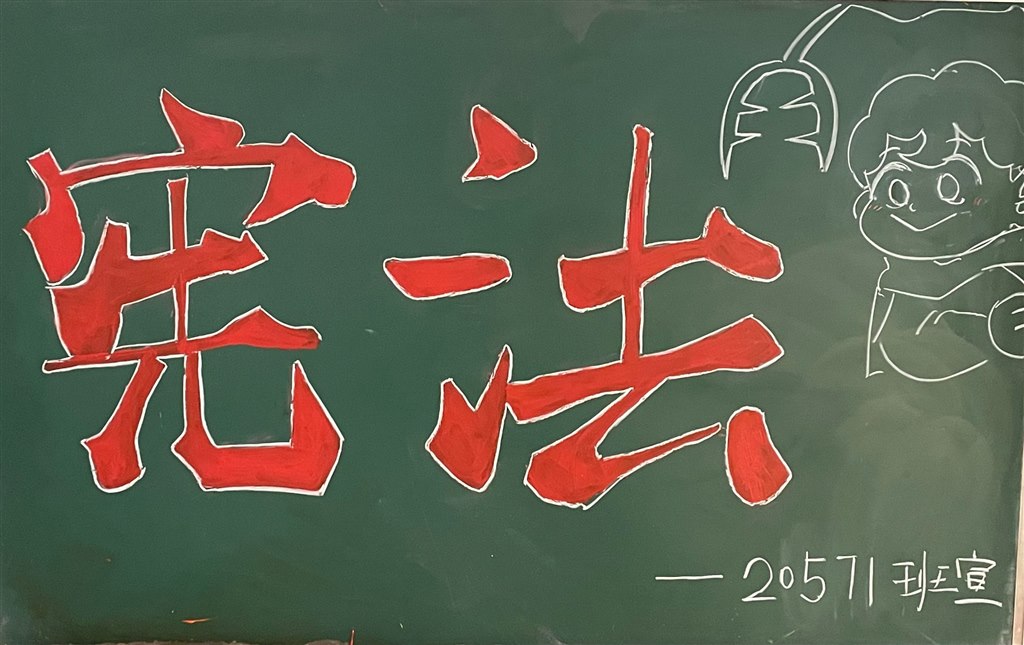 宪法
—20571班宣